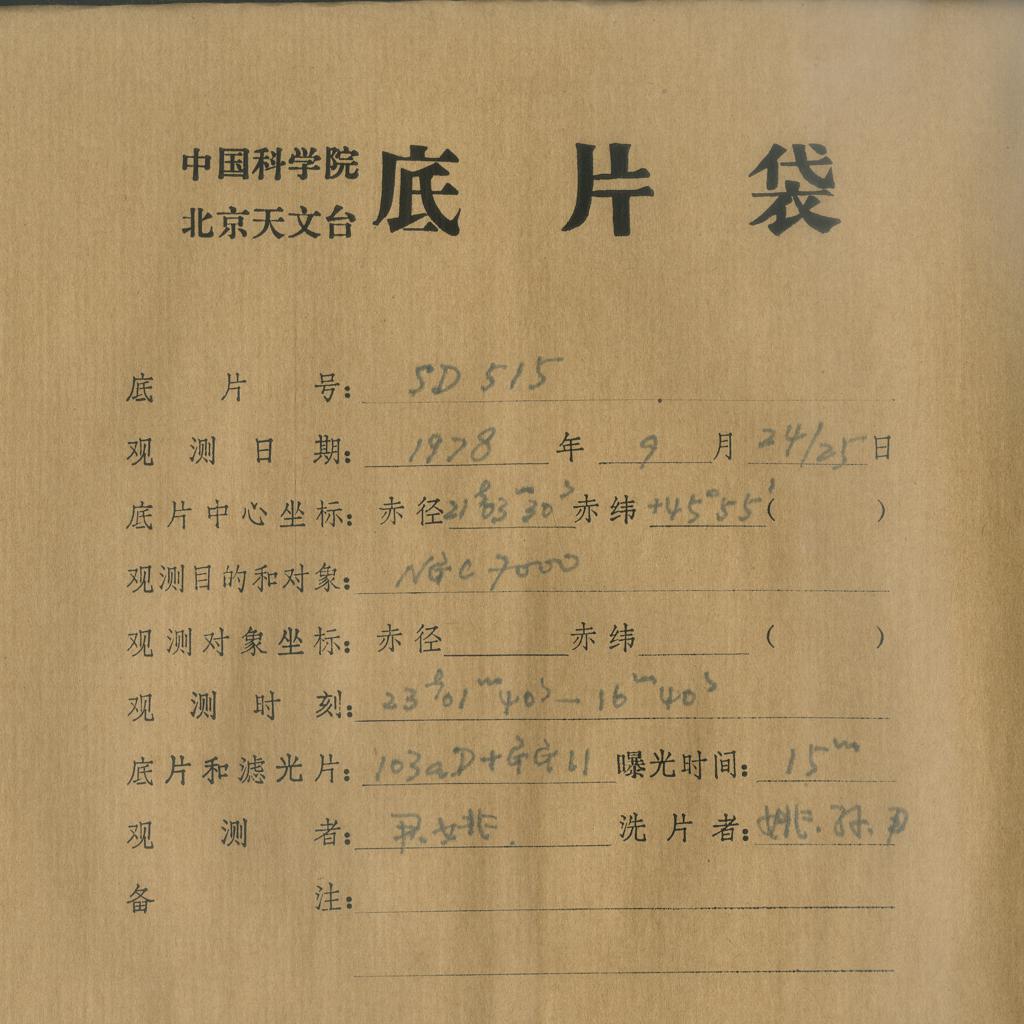 中国科学院
北京天文台
底片袋
底片号: SD 515
观测日期: 1978年9月24/25日
底片中心坐标: 赤径21ʰ03ᵐ30ˢ赤纬+45°55′( )
观测目的和对象: NGC 7000
观测对象坐标: 赤径 赤纬 ( )
观测时刻: 23ʰ01ᵐ40ˢ—16ᵐ40ˢ
底片和滤光片: 103aD+GG11 曝光时间: 15ᵐ
观测者: 尹.姚. 洗片者: 姚.孙.尹
备注: